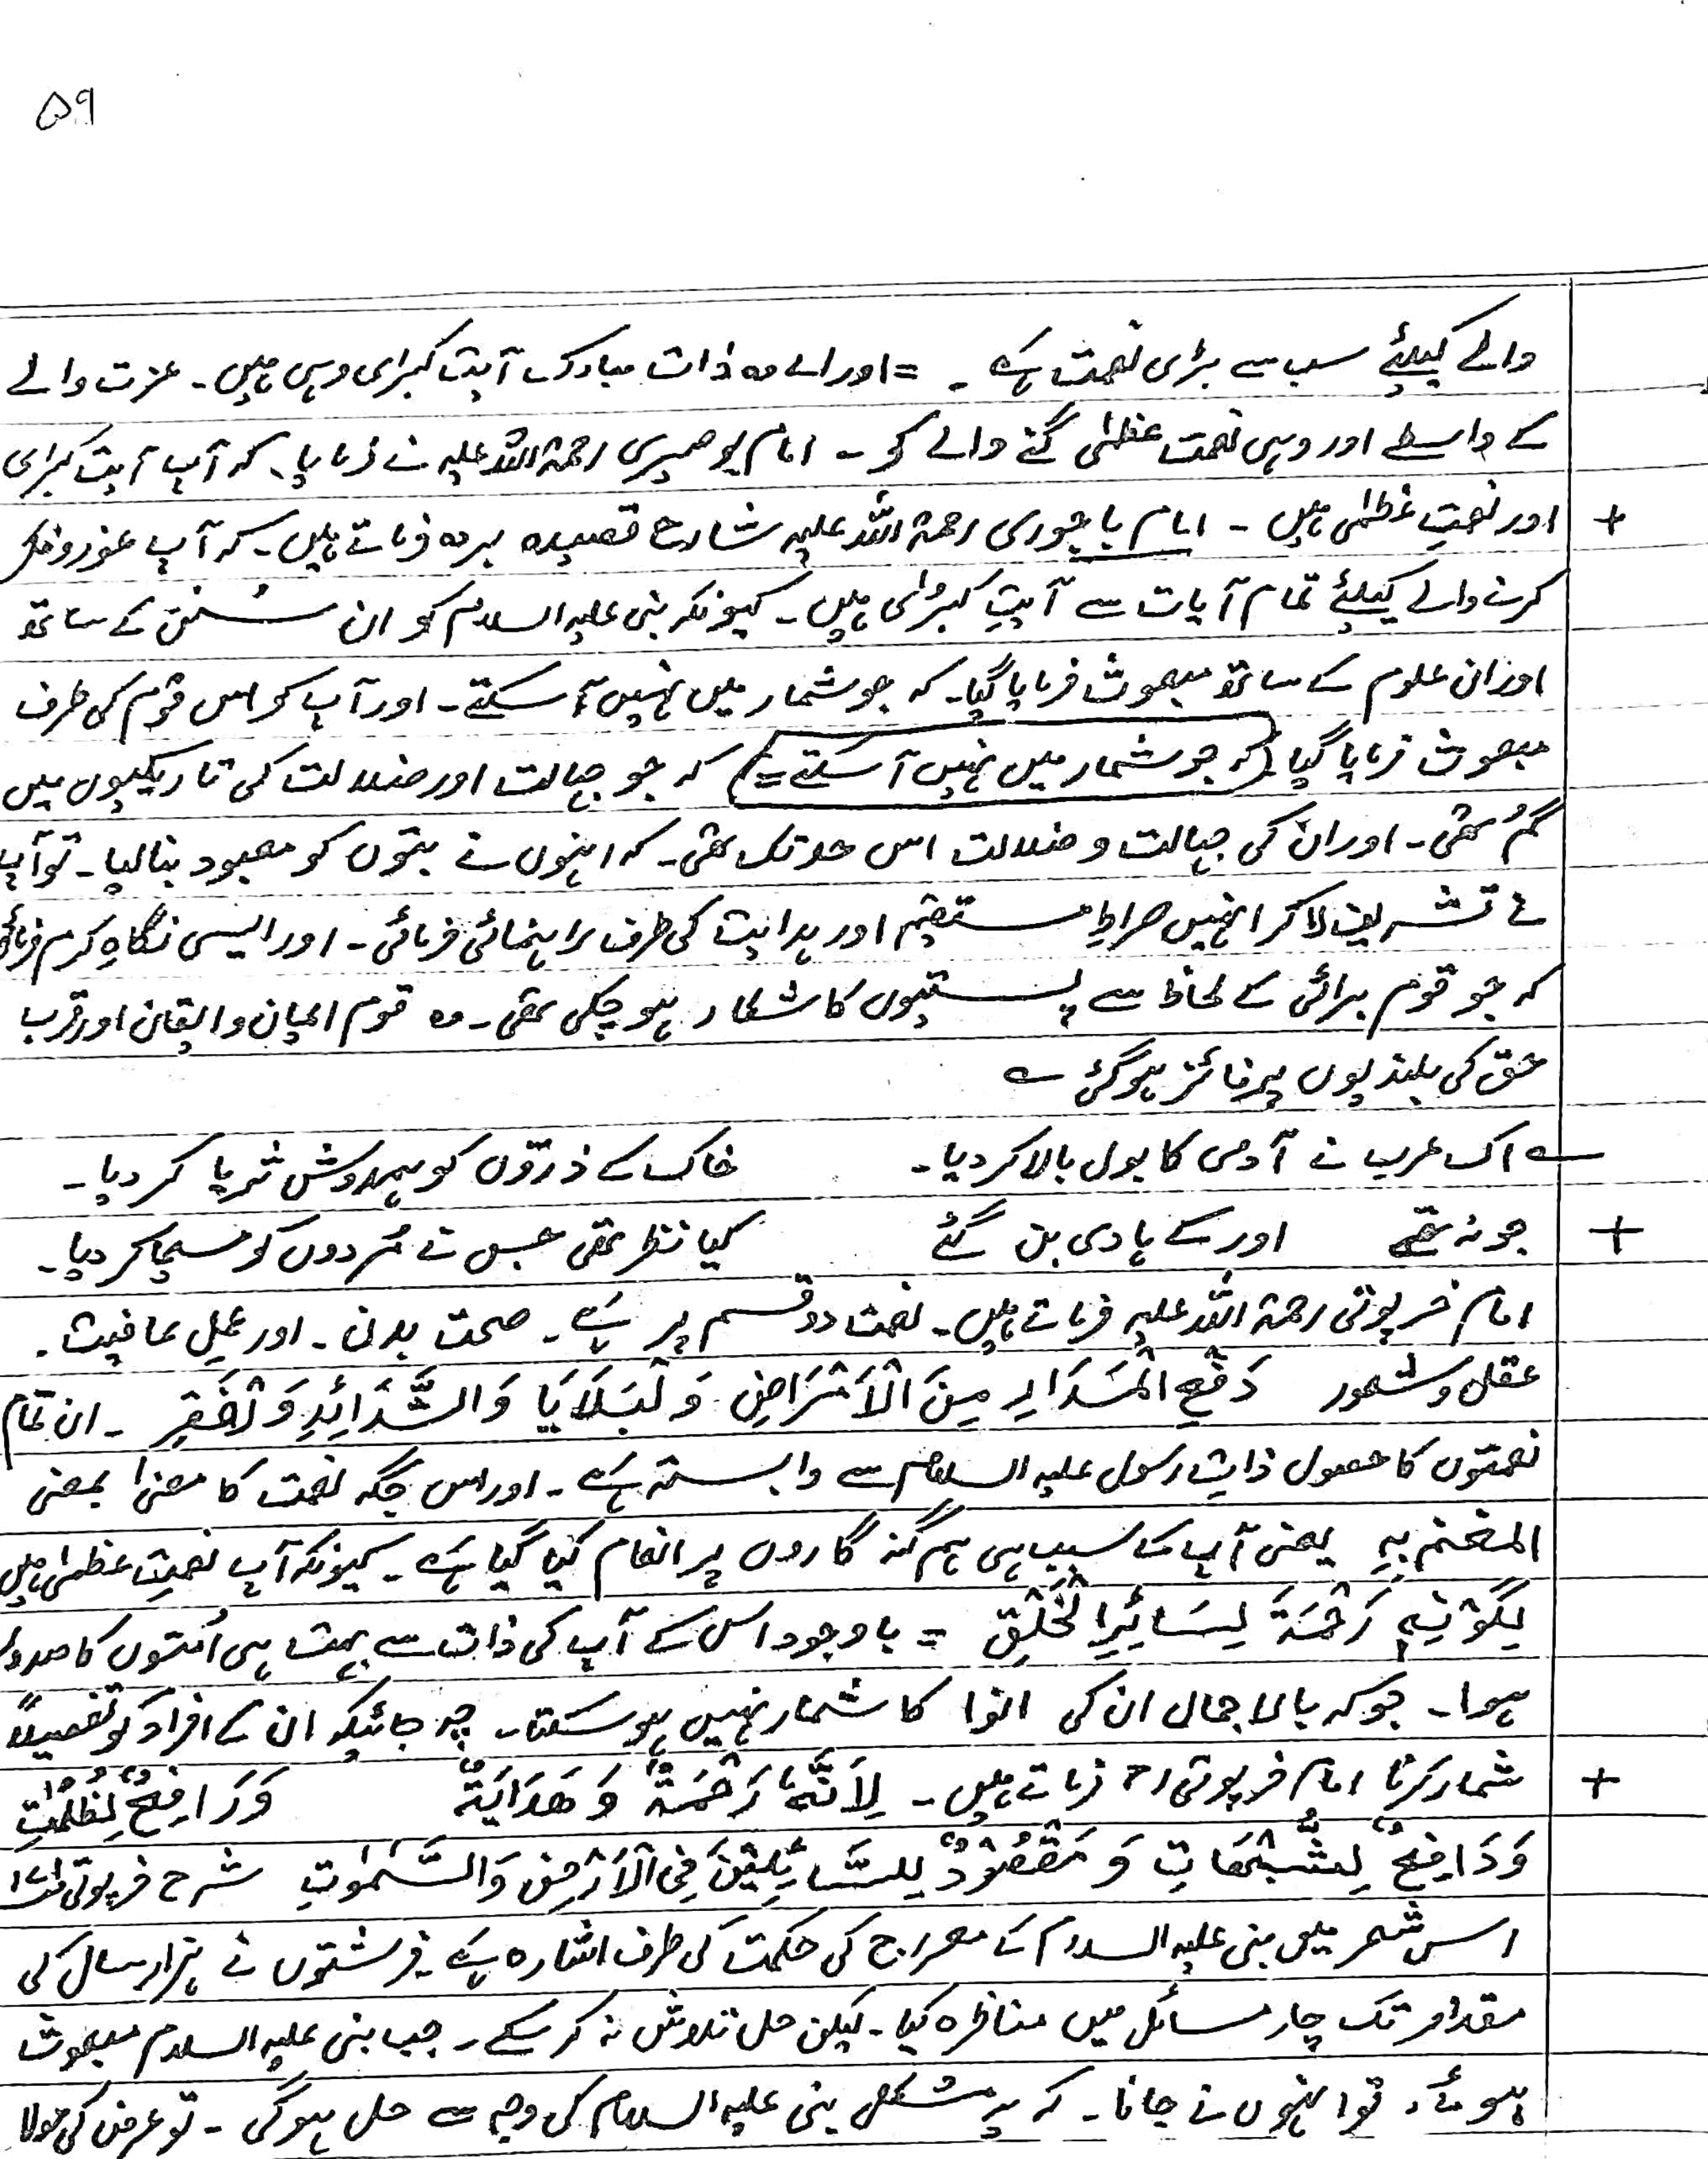 ۵۹
والے کیلئے سب سے بڑی نعمت ہے ۔ = اور اے وہ ذات مبارک آیت کبرای وہی ہیں ۔ عزت والے
کے واسطے اور وہی نعمت عظمٰی گنے والے کو ۔ امام بوصیری رحمۃ اللہ علیہ نے فرمایا ۔ کہ آپ آیت کبرای
+ اور نعمتِ عظمٰی ہیں ۔ امام باجوری رحمۃ اللہ علیہ شارح قصیدہ بردہ فرماتے ہیں ۔ کہ آپ غور و فکر
کرنے والے کیلئے تمام آیات سے آیتِ کبرٰی ہیں ۔ کیونکہ نبی علیہ السلام کو ان سُنن کے ساتھ
اور ان علوم کے ساتھ مبعوث فرمایا گیا ۔ کہ جو شمار میں نہیں آ سکتے ۔ اور آپ کو اس قوم کی طرف
مبعوث فرمایا گیا (کہ جو شمار میں نہیں آ سکتے =) کہ جو جہالت اور ضلالت کی تاریکیوں میں
گُم تھی ۔ اور ان کی جہالت و ضلالت اس حد تک تھی ۔ کہ انہوں نے بتوں کو معبود بنا لیا ۔ تو آپ
نے تشریف لا کر انہیں صراطِ مستقیم اور ہدایت کی طرف راہنمائی فرمائی ۔ اور ایسی نگاہِ کرم فرمائی
کہ جو قوم برائی کے لحاظ سے پستیوں کا شکار ہو چکی تھی ۔ وہ قوم ایمان و ایقان اور قرب
حق کی بلندیوں پر فائز ہو گئی ؎
؎ اک عرب نے آدمی کا بول بالا کر دیا ۔ خاک کے ذرّوں کو ہمدوش ثریا کر دیا ۔
+ جو نہ تھے اور کے ہادی بن گئے کیا نظر تھی جس نے مُردوں کو مسیحا کر دیا ۔
امام خرپوتی رحمۃ اللہ علیہ فرماتے ہیں ۔ نعمت دو قسم پر ہے ۔ صحت بدن ۔ اور عملِ عافیت ۔
عقل و شعور دَفْعِ الْمَسَدَارِ مِنَ الْاَمْرَاضِ وَلْبَلَایَا وَالشَّدَائِدِ وَلْفَقِرِ ۔ ان تمام
نعمتوں کا حصول ذاتِ رسول علیہ السلام سے وابستہ ہے ۔ اور اس جگہ نعمت کا معنیٰ بمعنی
المغنم بِہِ یعنی آپ کے سبب ہی ہم گنہ گاروں پر انعام کیا گیا ہے ۔ کیونکہ آپ نعمتِ عظمٰی ہیں
لِکَوْنِہِ رَحْمَۃً لِسَائِرِ الْخَلْقِ = باوجود اس کے آپ کی ذات سے بہت ہی اُمتوں کا صدور
ہوا ۔ جو کہ بالاجمال ان کی انوا کا شمار نہیں ہو سکتا ۔ چہ جائیکہ ان کے افراد کو تفصیلاً
+ شمار کرنا امام خرپوتی رح فرماتے ہیں ۔ لِاَنَّہٗ رَحْمَۃٌ وَ ھَدَایَۃٌ وَرَافِعٌ لِظُلُمٰتِ
وَدَافِعٌ لِشُّبْھَاتِ وَ مَقْصُوْدٌ لِلسَّائِلِیْنَ فِی الْاَرْضِ وَالسَّمٰوٰتِ شرح خرپوتی
اس شعر میں نبی علیہ السلام کے معراج کی حکمت کی طرف اشارہ ہے ۔ فرشتوں نے ہزار سال کی
مقدار تک چار مسائل میں مناظرہ کیا ۔ لیکن حل تلاش نہ کر سکے ۔ جب نبی علیہ السلام مبعوث
ہوئے ۔ تو انہوں نے جانا ۔ کہ یہ مشکل نبی علیہ السلام کی وجہ سے حل ہو گی ۔ تو عرض کی مولا